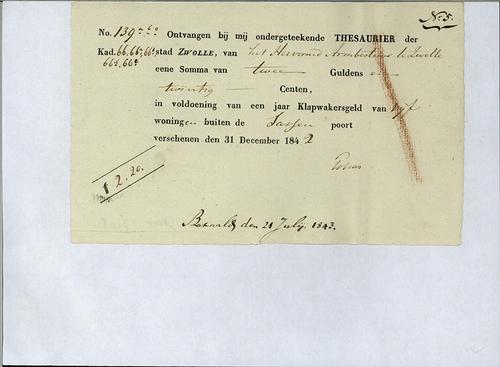 No. 5.
No. 139 Ontvangen bij mij ondergeteekende THESAURIER der
Kad. 66, 66a, 66b stad ZWOLLE, van het Hervormd Armbestuur te Zwolle
66c, 66d eene Somma van twee Guldens en
twintig Centen,
in voldoening van een jaar Klapwakersgeld van vijf
woningen buiten de Sassen poort
verschenen den 31 December 1842
f 2.20.
Betaald den 21 July 1843.